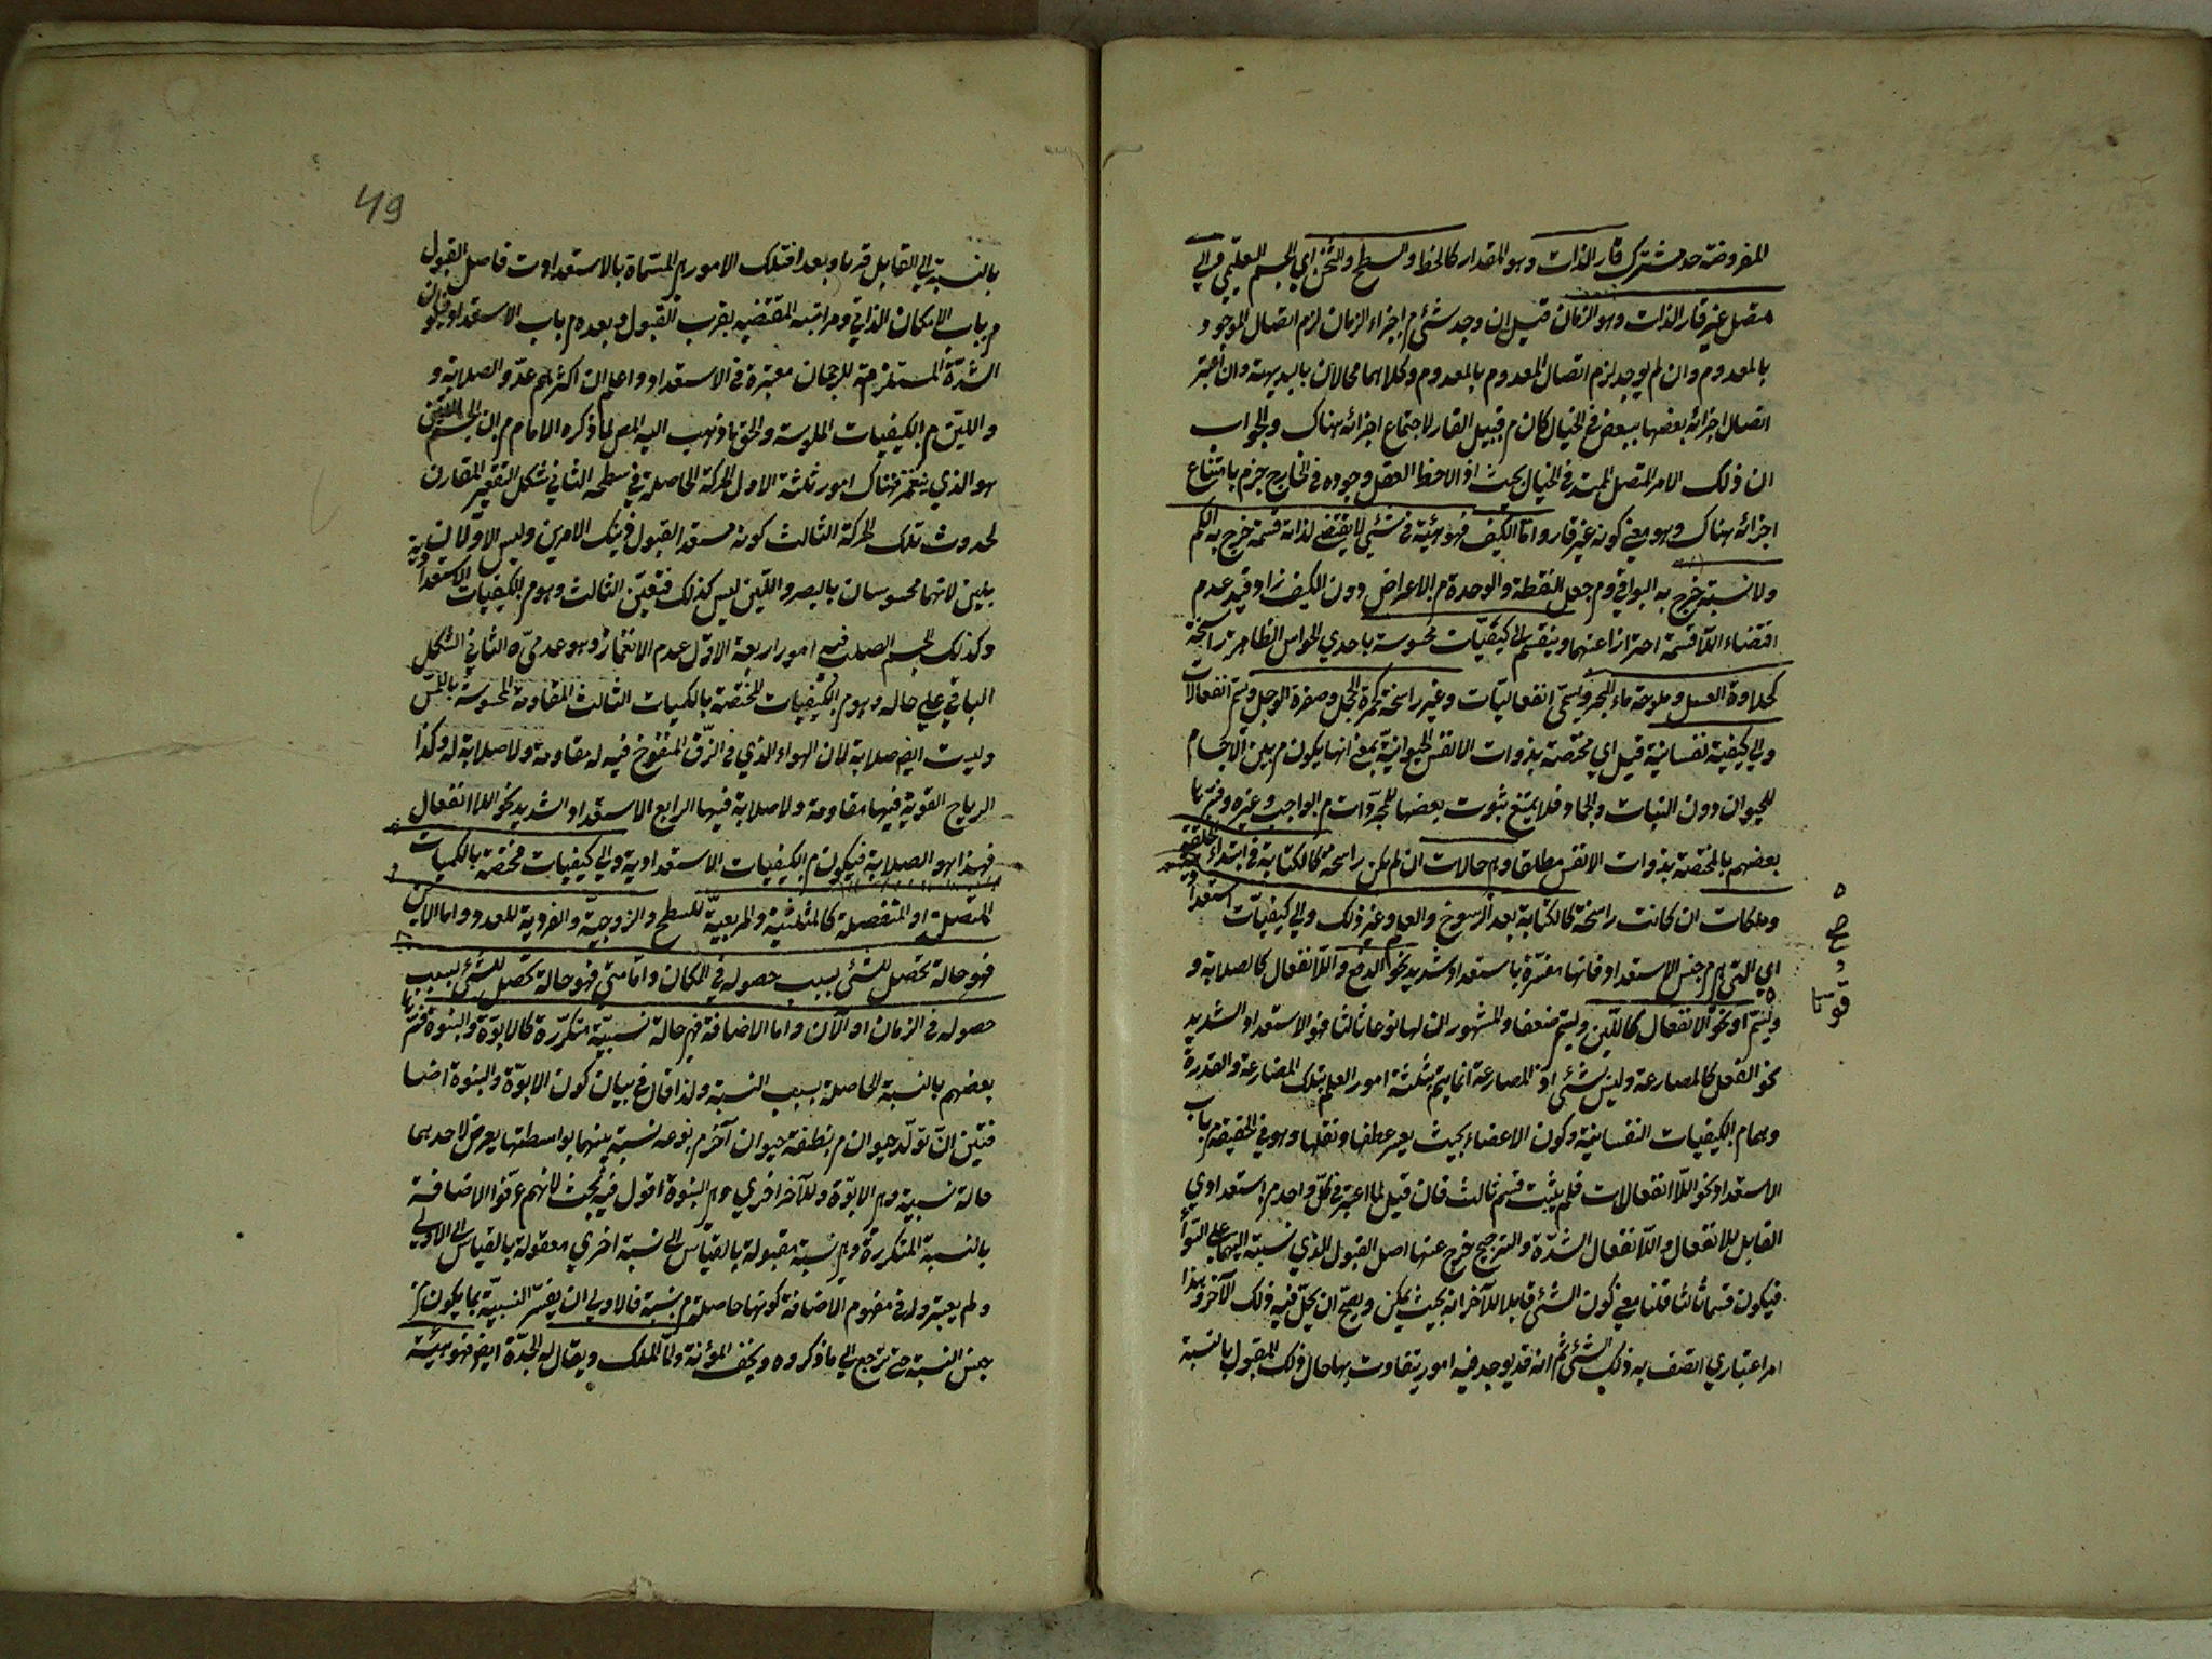 المفروضة حد مشترك قار الذات وهو المقدار كالخط والسطح والثخن اي الجسم التعليمي والي
متصل غير قار الذات وهو الزمان قيل ان وجد شئ م اجزاء الزمان لزم اتصال الموجود
بالمعدوم وان لم يوجد لزم اتصال المعدوم بالمعدوم وكلاهما محالان بالبديهة وان اعتبر
اتصال اجزائه بعضها ببعض في الخيال كان م قبيل القار لاجتماع اجزائه هناك والجواب
ان ذلك الامر المتصل الممتد في الخيال بحيث اذا لاحظ العقل وجوده في الخارج جزم بامتناع
اجزائه هناك وهو معنى كونه غير قار واما الكيف فهو هيئة في شئ لا يقتضى لذاته قسمة خرج به الكم
ولا نسبة خرج به البواقي وم جعل النقطة والوحدة م الاعراض دون الكيف زاد قيد عدم
اقتضاء اللا قسمة احترازا عنهما وينقسم الى كيفيات محسوسة باحدي الحواس الظاهرة راسخة
كحلاوة العسل وملوحة ماء البحر ويسمى انفعاليات وغير راسخة كحمرة الخجل وصفرة الوجل ويسمى انفعالات
والي كيفية نفسانية قيل اي مختصة بذوات الانفس الحيوانية بمعنى انها يكون م بين الاجسام
للحيوان دون النبات والجماد فلا يمتنع ثبوت بعضها للمجردات م الواجب وغيره وفسرها
بعضهم بالمختصة بذوات الانفس مطلقا وهي حالات ان لم يكن راسخة كالكتابة في ابتداء الخلقة
وملكات ان كانت راسخة كالكتابة بعد الرسوخ والعلم وغير ذلك والي كيفيات استعدادية
اي التي هي م جنس الاستعداد فانها مفسرة باستعداد شديد نحو الدفع واللا نفعال كالصلابة و
ويسمى او نحو الانفعال كاللين ويسمى ضعفا والمشهور ان لها نوعا ثالثا فهو الاستعداد الشديد
نحو الفعل كالمصارعة وليس بشئ اذ المصارعة انما يتم بثلثة امور العلم بتلك المصارعة والقدرة
وهما م الكيفيات النفسانية وكون الاعضاء بحيث يعسر عطفها ونقلها وهو في الحقيقة م باب
الاستعداد نحو اللا انفعالات فلم يثبت قسم ثالث فان قيل لما اعتبر في كل واحد م استعدادي
القابل للانفعال واللا نفعال الشدة والترجيح خرج عنها اصل القبول الذي نسبته اليهما على السواء
فيكون قسما ثالثا قلنا معنى كون الشئ قابلا للآخر انه بحيث يمكن ويصح ان يحل فيه ذلك الآخر وهذا
امر اعتباري اتصف به ذلك الشئ ثم انه قد يوجد فيه امور يتفاوت بها حال ذلك المقبول بالنسبة
قوتا
49
بالنسبة الي القابل قربا وبعدا فتلك الامور هي المسماة بالاستعدادات فاصل القبول
م باب الامكان الذاتي ومراتبه المقتضية بقرب القبول وبعده م باب الاستعداد فيكون
الشدة المستلزمة للرجحان معتبرة في الاستعداد واعلم ان اكثرهم عدوا الصلابة و
واللين م الكيفيات الملموسة والحق ما ذهب اليه المص لما ذكره الامام م ان الجسم اللين
هو الذي ينغمز فهناك امور ثلثة الاول الحركة الحاصلة في سطحه الثاني شكل التقعير المقارن
لحدوث تلك الحركة الثالث كونه مستعد القبول ذينك الامرين وليس الاولان
بلين لانهما محسوسان بالبصر واللين ليس كذلك فتعين الثالث وهو م الكيفيات الاستعدادية
وكذلك الجسم الصلب فيه امور اربعة الاول عدم الانغماز وهو عدمي ه الثاني الشكل
الباقي علي حاله وهو م الكيفيات المختصة بالكميات الثالث المقاومة المحسوسة باللمس
وليست ايض صلابة لان الهواء الذي في الزق المنفوخ فيه له مقاومة ولا صلابة له وكذا
الرياح القوية فيها مقاومة ولا صلابة فيها الرابع الاستعداد الشديد نحو اللا انفعال
فهذا هو الصلابة فيكون م الكيفيات الاستعدادية والي كيفيات مختصة بالكميات
المتصلة او المنفصلة كالمثلثية والمربعية للسطح والزوجية والفردية للعدد واما الاين
فهو حالة تحصل للشئ بسبب حصوله في المكان واما متى فهو حالة تحصل للشئ بسبب
حصوله في الزمان او الآن واما الاضافة فهي حالة نسبية متكررة كالابوة والبنوة فسرها
بعضهم بالنسبة الحاصلة بسبب النسبة ولذا قال في بيان كون الابوة والبنوة اضا
فتين ان تولد حيوان م نطفة حيوان آخر م نوعه نسبة بينهما بواسطتها يعرض لاحدهما
حالة نسبية وهي الابوة وللآخر اخري وهي البنوة اقول فيه بحث لانهم عرفوا الاضافة
بالنسبة المتكررة وهي نسبة معقولة بالقياس الى نسبة اخري معقولة بالقياس الى الاولى
ولم يعتبروا في مفهوم الاضافة كونها حاصلة م نسبة فالاولي ان يفسر النسبية بما يكون م
جنس النسبة حتى ترجع الي ما ذكروه ويخف المؤنة واما الملك ويقال له الجدة ايض فهو هيئة